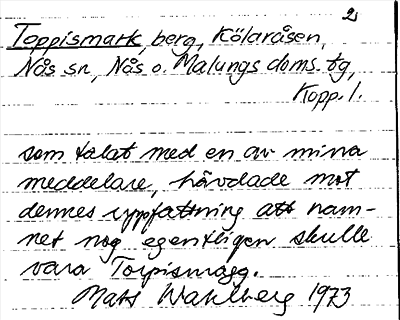 2.
Toppismark, berg, Kölaråsen,
Nås sn, Nås o. Malungs doms. tg,
Kopp. l.
som talat med en av mina
meddelare, hävdade mot
dennes uppfattning att nam-
net nog egentligen skulle
vara Torpismagg.
Mats Wahlberg 1973